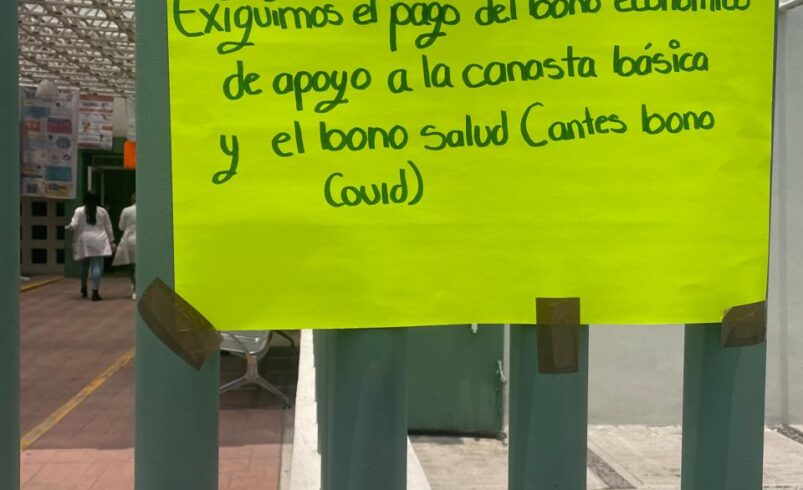 Exiguimos el pago del bono económico
de apoyo a la canasta básica
y el bono salud (antes bono
Covid)